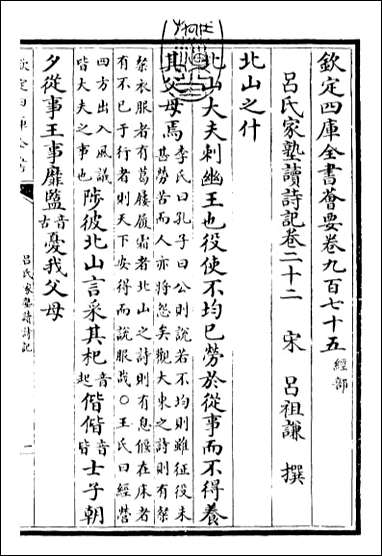 欽定四庫全書薈要卷九百七十五 經部
呂氏家塾讀詩記卷二十二 宋 呂祖謙 撰
北山之什
北山大夫刺幽王也役使不均已勞於從事而不得養
其父母焉 李氏曰孔子曰公則說若不均則雖征役未
甚勞苦而人亦將怨矣觀大東之詩則有粲
粲衣服者有葛屨履霜者北山之詩則有息偃在床者
有不已于行者則天下安得而說服哉○王氏曰經營
四方出入風議
皆大夫之事也 陟彼北山言采其杞 音起 偕偕 音皆 士子朝
夕從事王事靡盬 音古 憂我父母
欽定四庫全書
呂氏家塾讀詩記
一